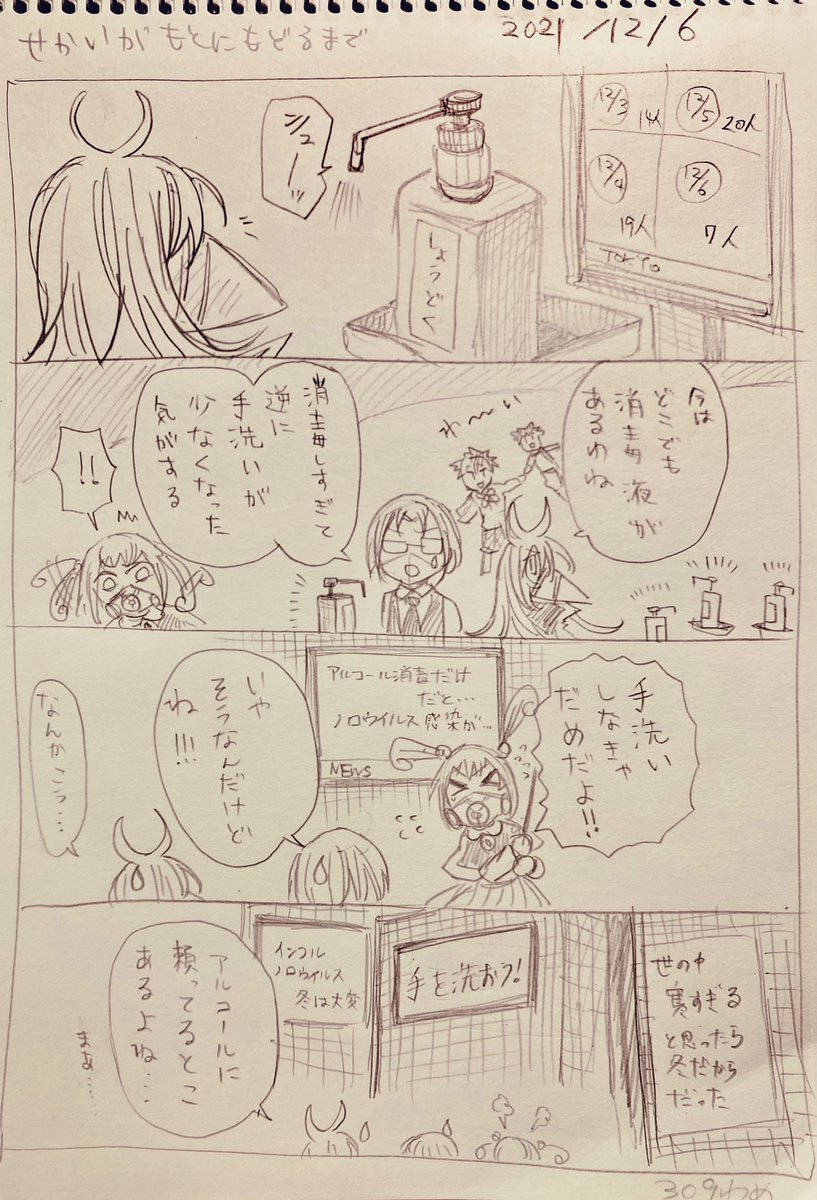 せかいがもとにもどるまで
2021/12/6
12/3
14人
12/5
20人
12/4
19人
12/6
7人
TOKYO
しょうどく
シューッ
今は
どこでも
消毒液が
あるわね
わ〜い
消毒しすぎて
逆に
手洗いが
少なくなった
気がする
!!
手洗い
しなきゃ
だめだよ!!
アルコール消毒だけ
だと…
ノロウイルス感染が…
NEWS
いや
そうなんだけど
ね!!!
なんかこう…
世の中
寒すぎる
と思ったら
冬だから
だった
手を洗おう!
インフル
ノロウイルス
冬は大変
アルコールに
頼ってるとこ
あるよね…
まぁ……
309わめ